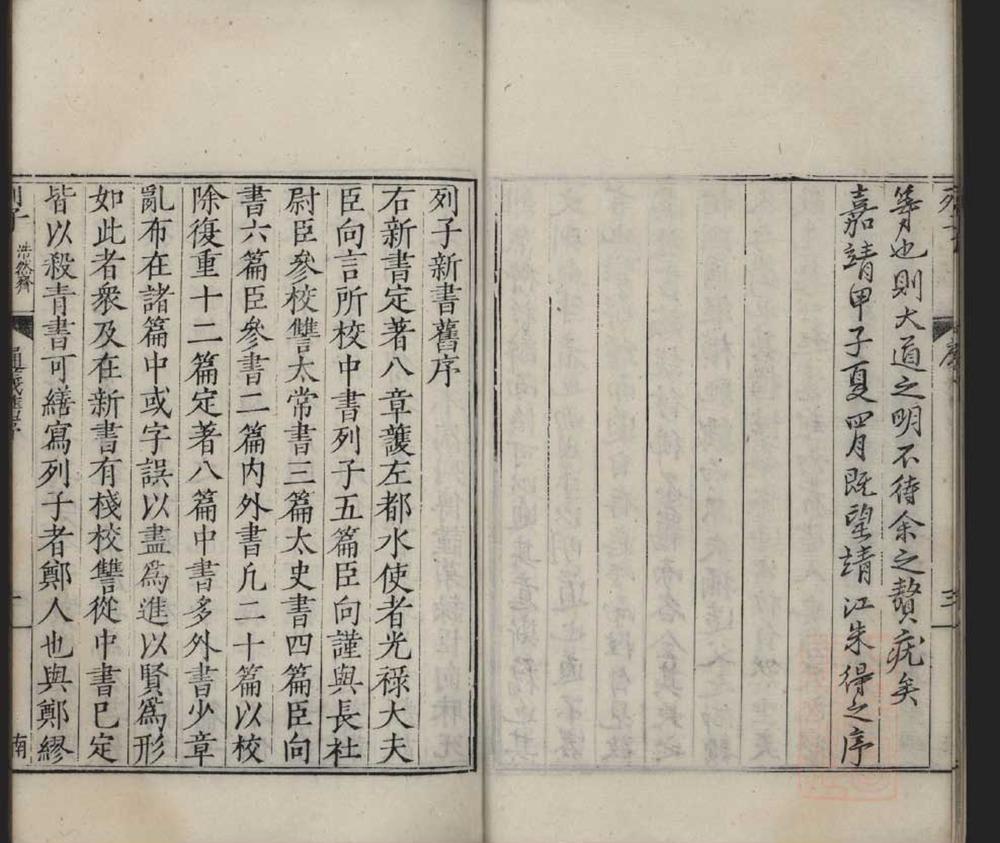 等也則大道之明不待余之贅疣矣
嘉靖甲子夏四月既望靖江朱得之序
列子新書舊序
右新書定著八章護左都水使者光祿大夫
臣向言所校中書列子五篇臣向謹與長社
尉臣參校讐太常書三篇太史書四篇臣向
書六篇臣參書二篇內外書凡二十篇以校
除復重十二篇定著八篇中書多外書少章
亂布在諸篇中或字誤以盡爲進以賢爲形
如此者衆及在新書有棧校讐從中書已定
皆以殺青書可繕寫列子者鄭人也與鄭繆
列子 浩然齋 南